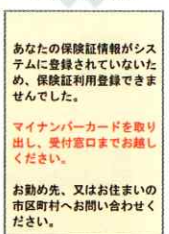 あなたの保険証情報がシス
テムに登録されていないた
め、保険証利用登録できま
せんでした。
マイナンバーカードを取り
出し、受付窓口までお越し
ください。
お勤め先、又はお住まいの
市区町村へお問い合わせく
ださい。